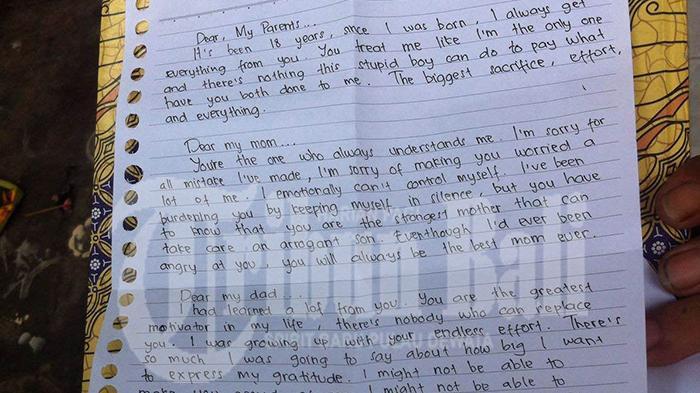 Dear, My Parents...
It's been 18 years, since I was born, I always get
everything from you. You treat me like I'm the only one
and there's nothing this stupid boy can do to pay what
have you both done to me. The biggest sacrifice, effort,
and everything.
Dear my mom...
You're the one who always understands me. I'm sorry for
all mistake I've made, I'm sorry of making you worried a
lot of me. I emotionally can't control myself. I've been
burdening you by keeping myself in silence, but you have
to know that you are the strongest mother that can
take care an arrogant son. Eventhough I'd ever been
angry at you, you will always be the best mom ever.
Dear my dad...
I had learned a lot from you. You are the greatest
motivator in my life, there's nobody who can replace
you. I was growing up with your endless effort. There's
so much I was going to say about how big I want
to express my gratitude. I might not be able to
I might not be able to
Tribun Bali